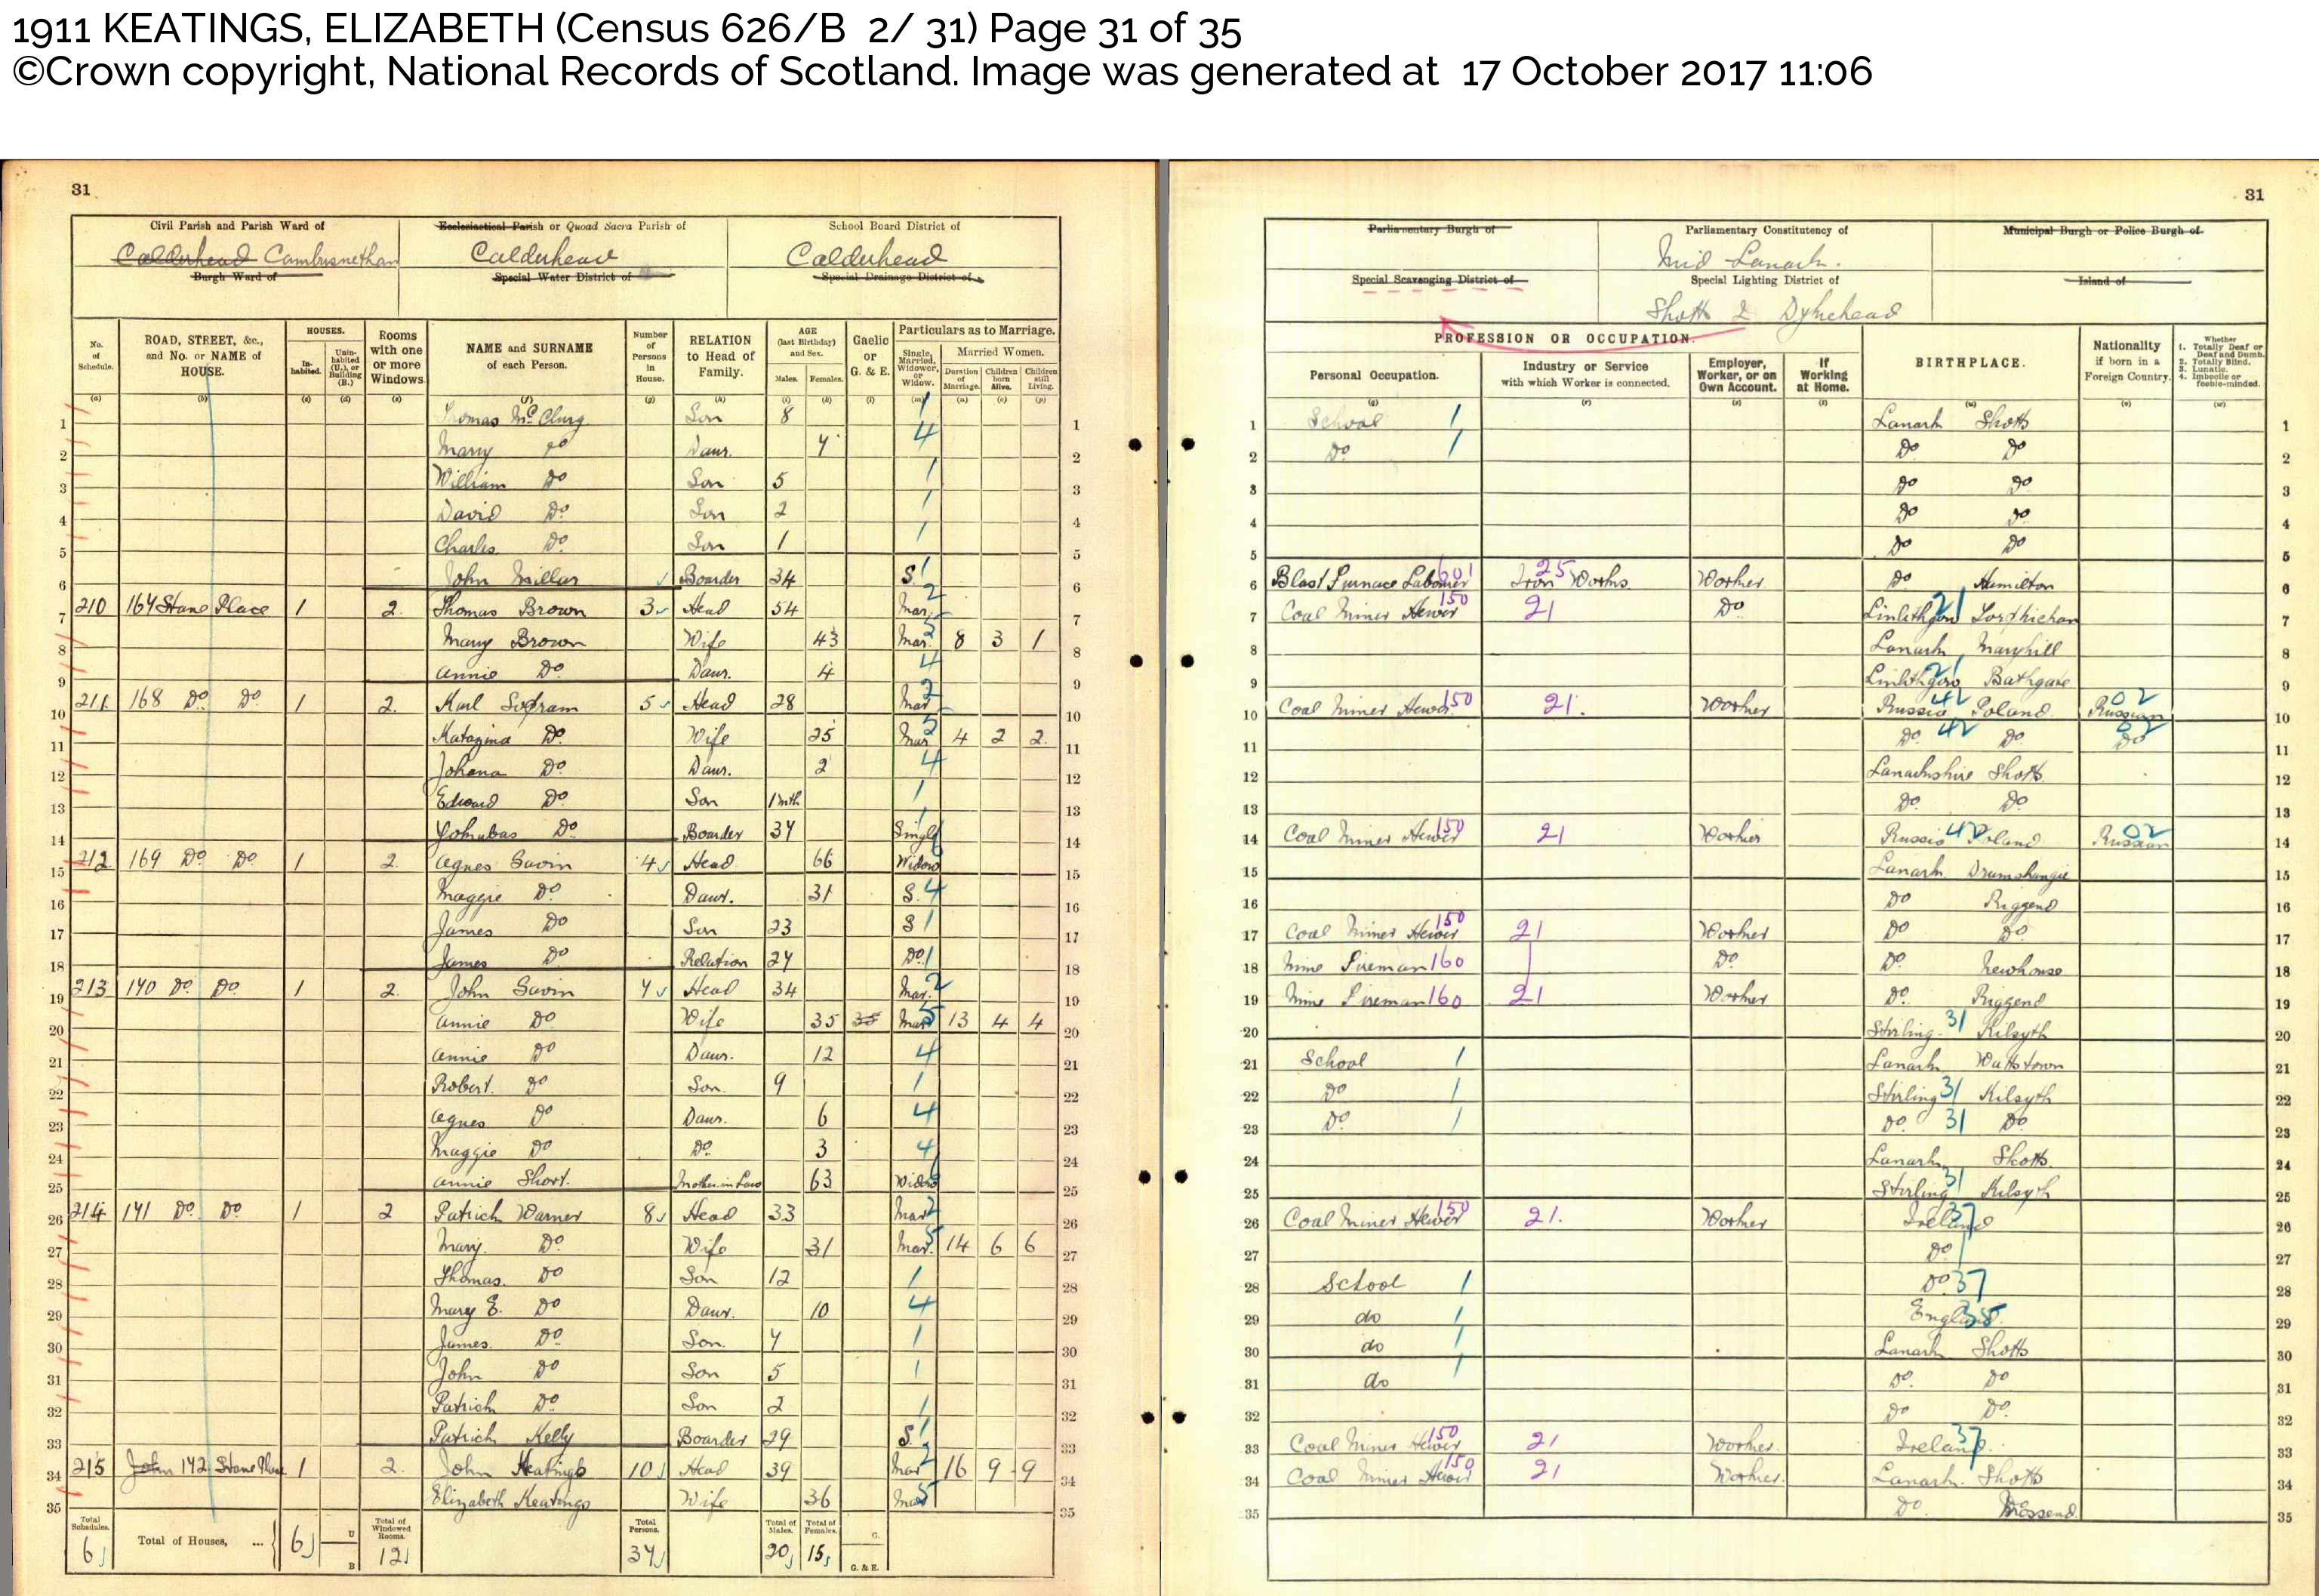 1911 KEATINGS, ELIZABETH (Census 626/B 2/ 31) Page 31 of 35
©Crown copyright, National Records of Scotland. Image was generated at 17 October 2017 11:06
31
Civil Parish and Parish Ward of
Calderhead Cambusnethan
Burgh Ward of
Ecclesiastical Parish or Quoad Sacra Parish of
Calderhead
Special Water District of
School Board District of
Calderhead
Special Drainage District of
No. of Schedule. (a)
ROAD, STREET, &c., and No. or NAME of HOUSE. (b)
HOUSES. Inhabited. (c) Uninhabited (U.), or Building (B.) (d)
Rooms with one or more Windows (e)
NAME and SURNAME of each Person. (f)
Number of Persons in House. (g)
RELATION to Head of Family. (h)
AGE (last Birthday) and Sex. Males. (i) Females. (k)
Gaelic or G. & E. (l)
Particulars as to Marriage. Single, Married, Widower, or Widow. (m)
Married Women. Duration of Marriage. (n) Children born Alive. (o) Children still Living. (p)
1 Thomas McClurg Son 8 1
2 Mary Do Daur. 7 4
3 William Do Son 5 1
4 David Do Son 2 1
5 Charles Do Son 1 1
6 John Millar Boarder 34 S. 1
7 210 167 Stane Place 1 2 Thomas Brown 3 Head 54 Mar. 2
8 Mary Brown Wife 43 Mar. 5 8 3 1
9 Annie Do Daur. 4 4
10 211 168 Do Do 1 2 Karl 5 Head 28 Mar 2
11 Do Wife 25 Mar 5 4 2 2
12 Johana Do Daur. 2 4
13 Edward Do Son 1 mth 1
14 Do Boarder 37 Single 1
15 212 169 Do Do 1 2 Agnes Gavin 4 Head 66 Widow
16 Maggie Do Daur. 31 S. 4
17 James Do Son 23 S 1
18 James Do Relation 27 Do 1
19 213 170 Do Do 1 2 John Gavin 7 Head 34 Mar. 2
20 Annie Do Wife 35 35 Mar 5 13 4 4
21 Annie Do Daur. 12 4
22 Robert Do Son 9 1
23 Agnes Do Daur. 6 4
24 Maggie Do Do 3 4
25 Annie Short. Mother in Law 63 Widow
26 214 171 Do Do 1 2 Patrick Warner 8 Head 33 Mar 2
27 Mary Do Wife 31 Mar. 5 14 6 6
28 Thomas Do Son 12 1
29 Mary E. Do Daur. 10 4
30 James Do Son 7 1
31 John Do Son 5 1
32 Patrick Do Son 2 1
33 Patrick Kelly Boarder 29 S. 1
34 215 John 172 Stane Place 1 2 John Keatings 10 Head 39 Mar 2 16 9 9
35 Elizabeth Keatings Wife 36 Mar 5
Total Schedules. 6
Total of Houses, ... 6 U B
Total of Windowed Rooms. 12
Total Persons. 37
Total of Males. 20
Total of Females. 15
G.
G. & E.
31
Parliamentary Burgh of
Special Scavenging District of
Parliamentary Constitutency of
Mid Lanark.
Special Lighting District of
Shotts & Dykehead
Municipal Burgh or Police Burgh of
Island of
PROFESSION OR OCCUPATION.
Personal Occupation. (q)
Industry or Service with which Worker is connected. (r)
Employer, Worker, or on Own Account. (s)
If Working at Home. (t)
BIRTHPLACE. (u)
Nationality if born in a Foreign Country. (v)
Whether 1. Totally Deaf or Deaf and Dumb. 2. Totally Blind. 3. Lunatic. 4. Imbecile or feeble-minded. (w)
1 School 1 Lanark Shotts
2 Do 1 Do Do
3 Do Do
4 Do Do
5 Do Do
6 Blast Furnace Labourer 601 Iron Works 25 Worker Do Hamilton
7 Coal Miner Hewer 150 21 Do Linlithgow 21 Torphichan
8 Lanark Maryhill
9 Linlithgow 21 Bathgate
10 Coal Miner Hewer 150 21. Worker Russia 42 Poland Russian 02
11 Do 42 Do Do 02
12 Lanarkshire Shotts
13 Do Do
14 Coal Miner Hewer 150 21 Worker Russia 42 Poland Russian 02
15 Lanark Drumshangie
16 Do Riggend
17 Coal Miner Hewer 150 21 Worker Do Do
18 Mine Fireman 160 Do Do Newhouse
19 Mine Fireman 160 21 Worker Do Riggend
20 Stirling 31 Kilsyth
21 School 1 Lanark Wattstown
22 Do 1 Stirling 31 Kilsyth
23 Do 1 Do 31 Do
24 Lanark Shotts.
25 Stirling 31 Kilsyth
26 Coal Miner Hewer 150 21. Worker Ireland 37
27 Do
28 School 1 Do 37
29 do 1 England
30 do 1 Lanark Shotts
31 do 1 Do Do
32 Do Do
33 Coal Miner Hewer 150 21 Worker Ireland 37
34 Coal Miner Hewer 150 21 Worker. Lanark. Shotts
35 Do Mossend